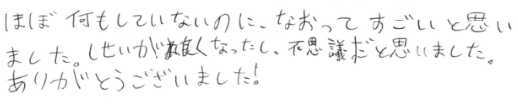 ほぼ何もしていないのに、なおってすごいと思い
ました。しせいが良くなったし、不思議だと思いました。
ありがとうございました!